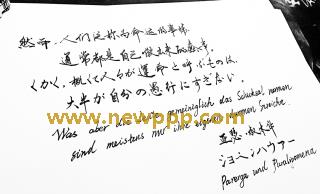 然而，人们称为命运的事情，
通常都是自己做出来的
く、概して人々が運命と呼ぶものは、
大半が自分の愚行にすぎない。
www.newppp.com
Was aber die Leute gemeiniglich das Schicksal nennen
sind meistens nur ihre eigenen dummen Streiche.
亚瑟·叔本华
ショーペンハウアー
Parerga und Paralipomena